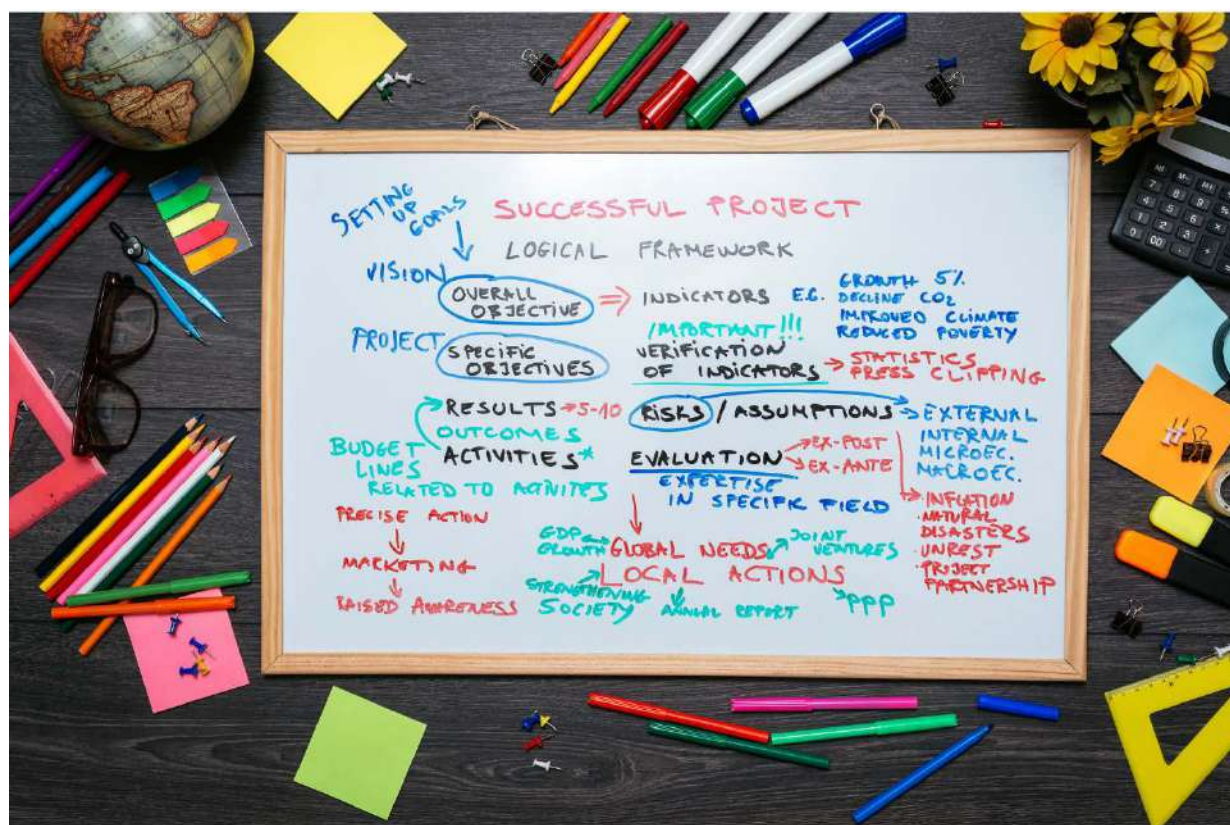 SETTING
UP
GOALS
SUCCESSFUL PROJECT
LOGICAL FRAMEWORK
VISION
OVERALL
OBJECTIVE
INDICATORS E.G.
GROWTH 5%
DECLINE CO2
IMPROVED CLIMATE
REDUCED POVERTY
PROJECT
SPECIFIC
OBJECTIVES
IMPORTANT!!!
VERIFICATION
OF INDICATORS
STATISTICS
PRESS CLIPPING
RESULTS 5-10
OUTCOMES
ACTIVITIES*
RISKS / ASSUMPTIONS
EXTERNAL
INTERNAL
MICROEC.
MACROEC.
BUDGET
LINES
RELATED TO ACTIVITES
EVALUATION
EX-POST
EX-ANTE
EXPERTISE
IN SPECIFIC FIELD
INFLATION
·NATURAL
DISASTERS
·UNREST
·PROJECT
PARTNERSHIP
PRECISE ACTION
MARKETING
RAISED AWARENESS
GDP
GROWTH
GLOBAL NEEDS
JOINT
VENTURES
LOCAL ACTIONS
STRENGTHENING
SOCIETY
ANNUAL REPORT
PPP
M+
7 8 9
4 5 6
1 2 3
0 00 .